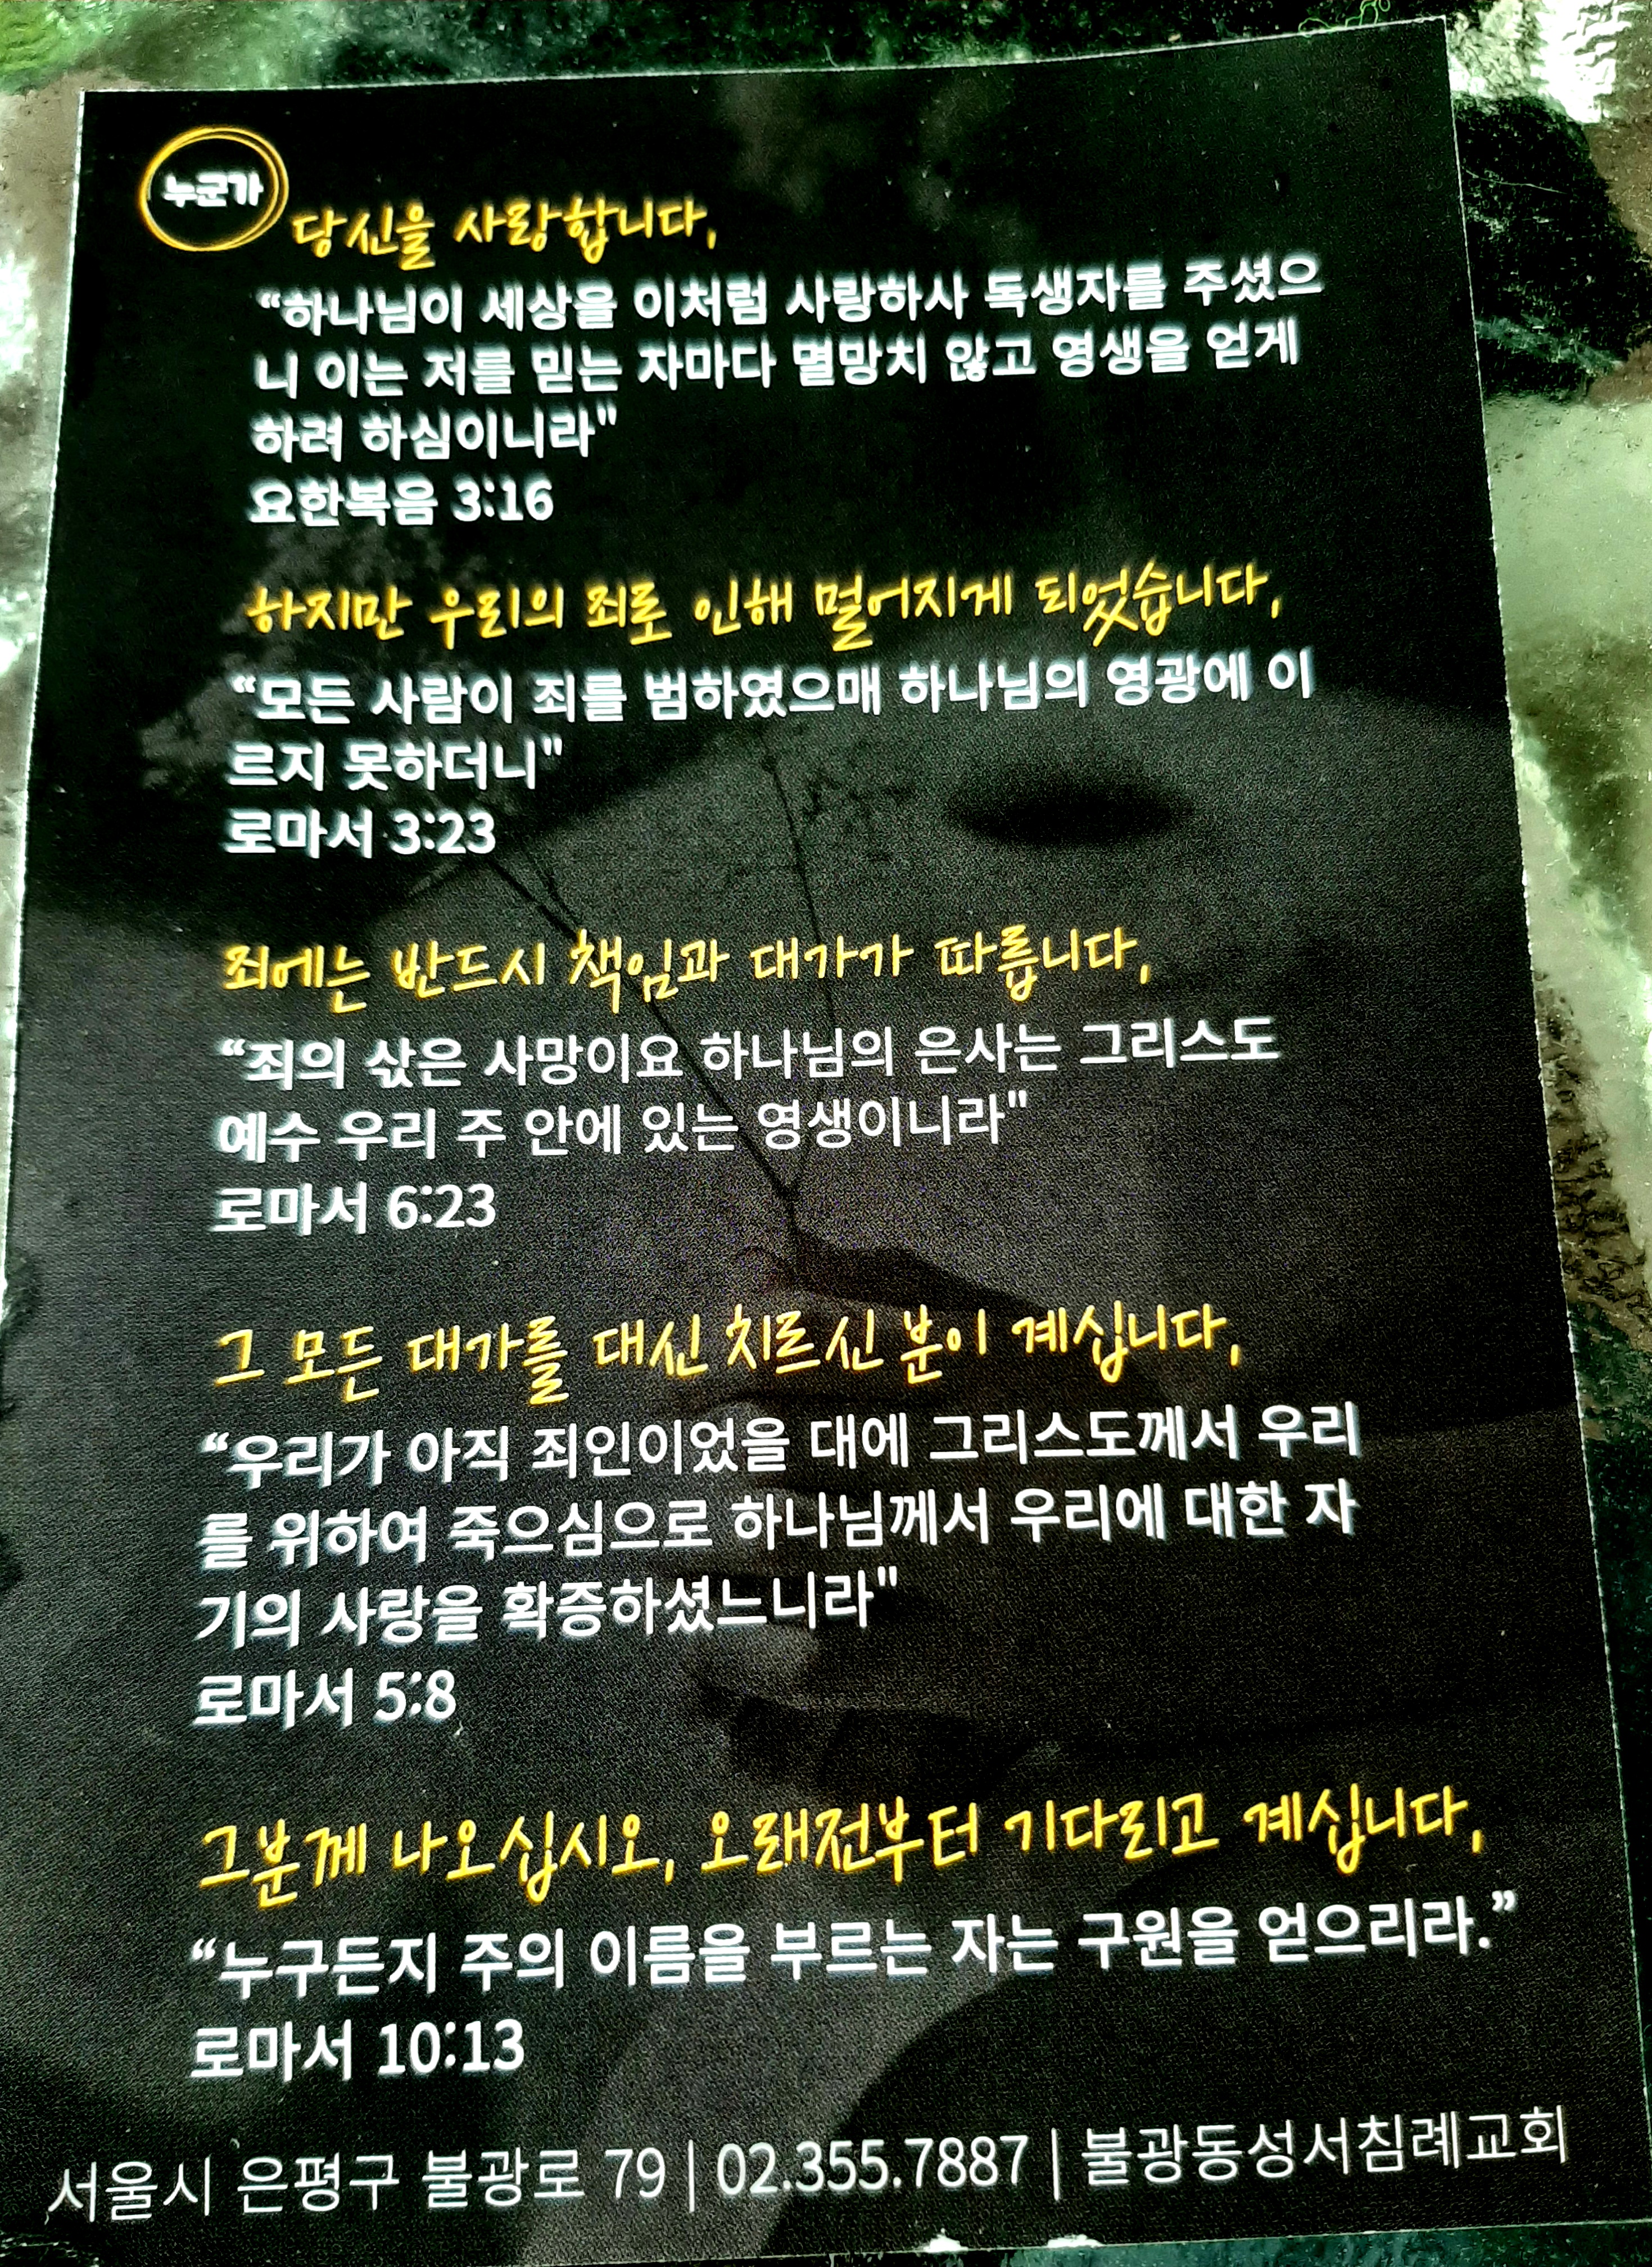 누군가
당신을 사랑합니다,
“하나님이 세상을 이처럼 사랑하사 독생자를 주셨으
니 이는 저를 믿는 자마다 멸망치 않고 영생을 얻게
하려 하심이니라"
요한복음 3:16
하지만 우리의 죄로 인해 멀어지게 되었습니다,
“모든 사람이 죄를 범하였으매 하나님의 영광에 이
르지 못하더니"
로마서 3:23
죄에는 반드시 책임과 대가가 따릅니다,
“죄의 삯은 사망이요 하나님의 은사는 그리스도
예수 우리 주 안에 있는 영생이니라"
로마서 6:23
그 모든 대가를 대신 치르신 분이 계십니다,
“우리가 아직 죄인이었을 대에 그리스도께서 우리
를 위하여 죽으심으로 하나님께서 우리에 대한 자
기의 사랑을 확증하셨느니라"
로마서 5:8
그분께 나오십시오, 오래전부터 기다리고 계십니다,
“누구든지 주의 이름을 부르는 자는 구원을 얻으리라.”
로마서 10:13
서울시 은평구 불광로 79 | 02.355.7887 | 불광동성서침례교회